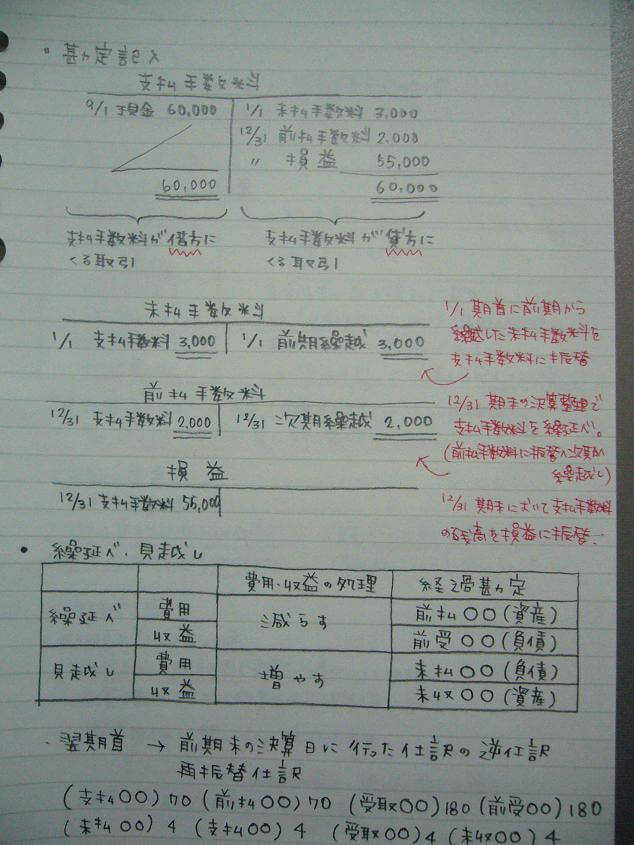 勘定記入
支払手数料
9/1 現金 60,000 1/1 未払手数料 3,000
12/31 前払手数料 2,000
〃 損益 55,000
60,000 60,000
支払手数料が借方に 支払手数料が貸方に
くる取引 くる取引
未払手数料
1/1 支払手数料 3,000 1/1 前期繰越 3,000
1/1 期首に前期から
繰越した未払手数料を
支払手数料に振替
前払手数料
12/31 支払手数料 2,000 12/31 次期繰越 2,000
12/31 期末の決算整理で
支払手数料を繰延べ。
(前払手数料に振替へ次期へ
繰越し)
損益
12/31 支払手数料 55,000
12/31 期末において支払手数料
の残高を損益に振替
・繰延べ・見越し
費用・収益の処理 経過勘定
繰延べ 費用 減らす 前払〇〇(資産)
収益 前受〇〇(負債)
見越し 費用 増やす 未払〇〇(負債)
収益 未収〇〇(資産)
・翌期首 → 前期末の決算日に行った仕訳の逆仕訳
再振替仕訳
(支払〇〇) 70 (前払〇〇) 70 (受取〇〇) 180 (前受〇〇) 180
(未払〇〇) 4 (支払〇〇) 4 (受取〇〇) 4 (未収〇〇) 4